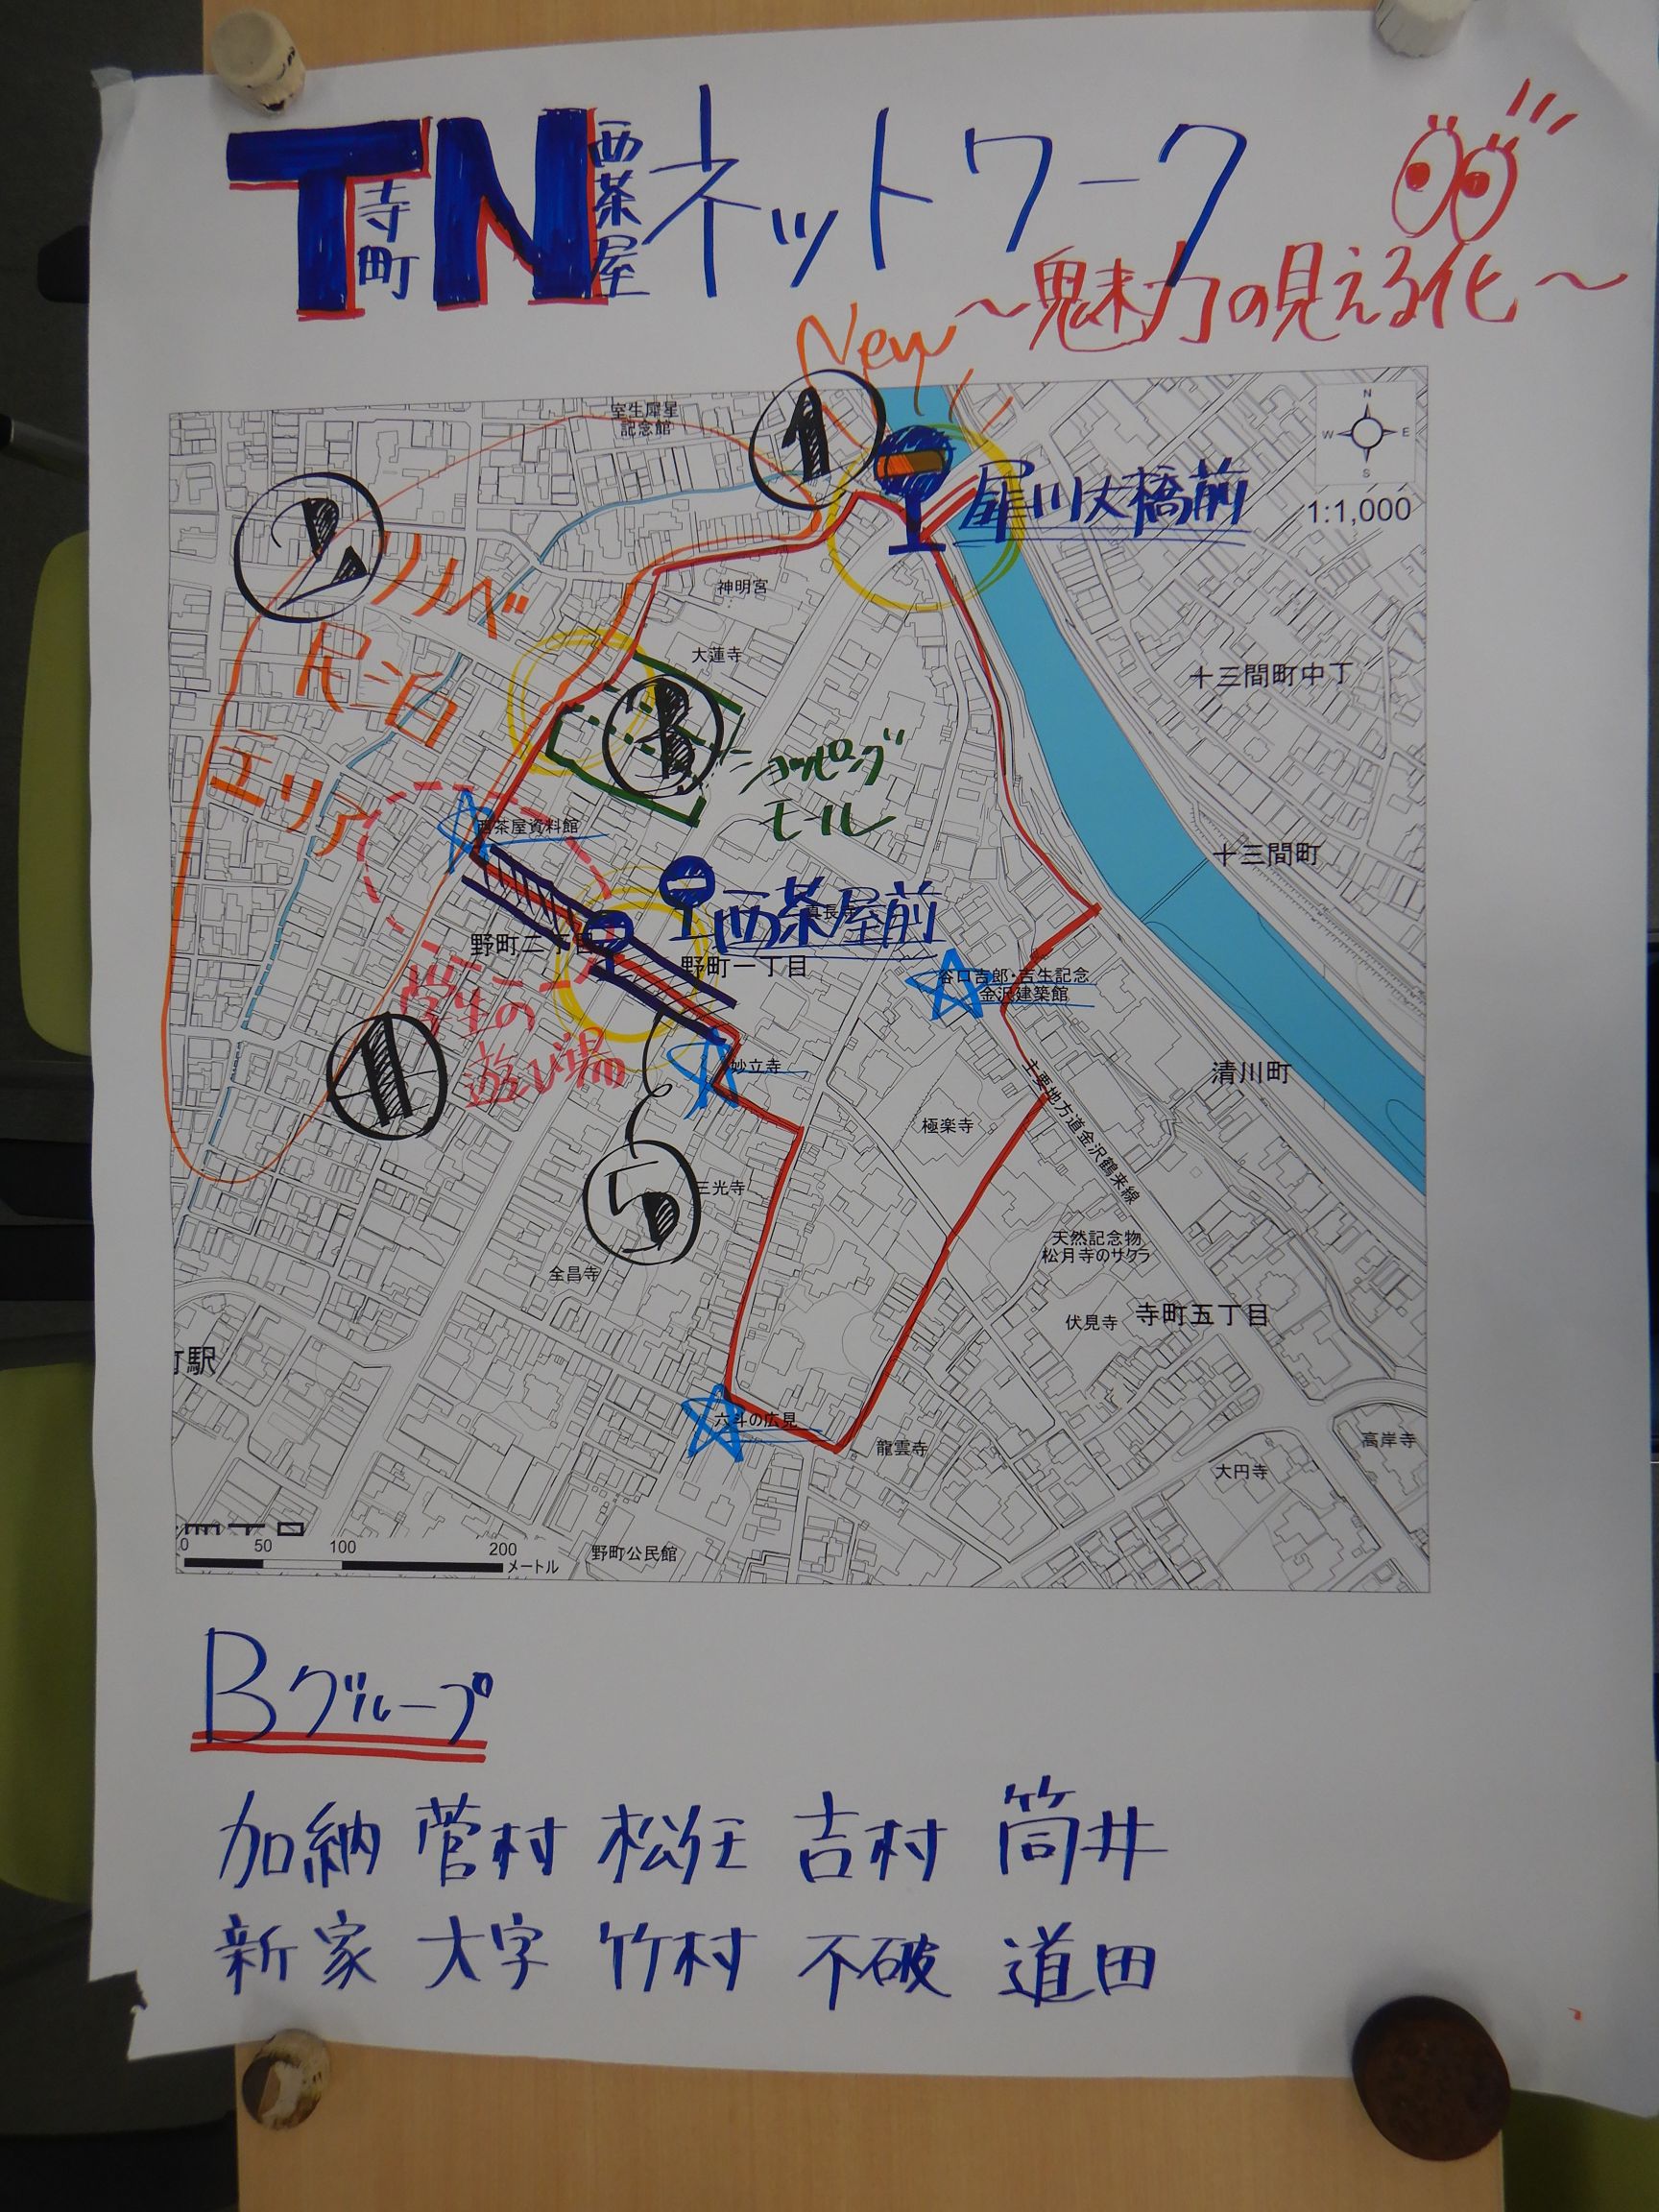 TN ネットワーク
寺町
西茶屋
～魅力の見える化～
New
室生犀星
記念館
1
N
W E
S
犀川大橋前
1:1,000
2
リノベ
神明宮
民泊
大蓮寺
十三間町中丁
エリア
3
ショッピング
モール
西茶屋資料館
十三間町
西茶屋前
野町二丁目
野町一丁目
谷口吉郎・吉生記念
金沢建築館
学生の
遊び場
妙立寺
清川町
主要地方道金沢鶴来線
極楽寺
5
三光寺
天然記念物
松月寺のサクラ
全昌寺
伏見寺
寺町五丁目
町駅
六斗の広見
龍雲寺
高岸寺
大円寺
0 50 100 200
メートル
野町公民館
Bグループ
加納 菅村 松任 吉村 筒井
新家 大字 竹村 不破 道田